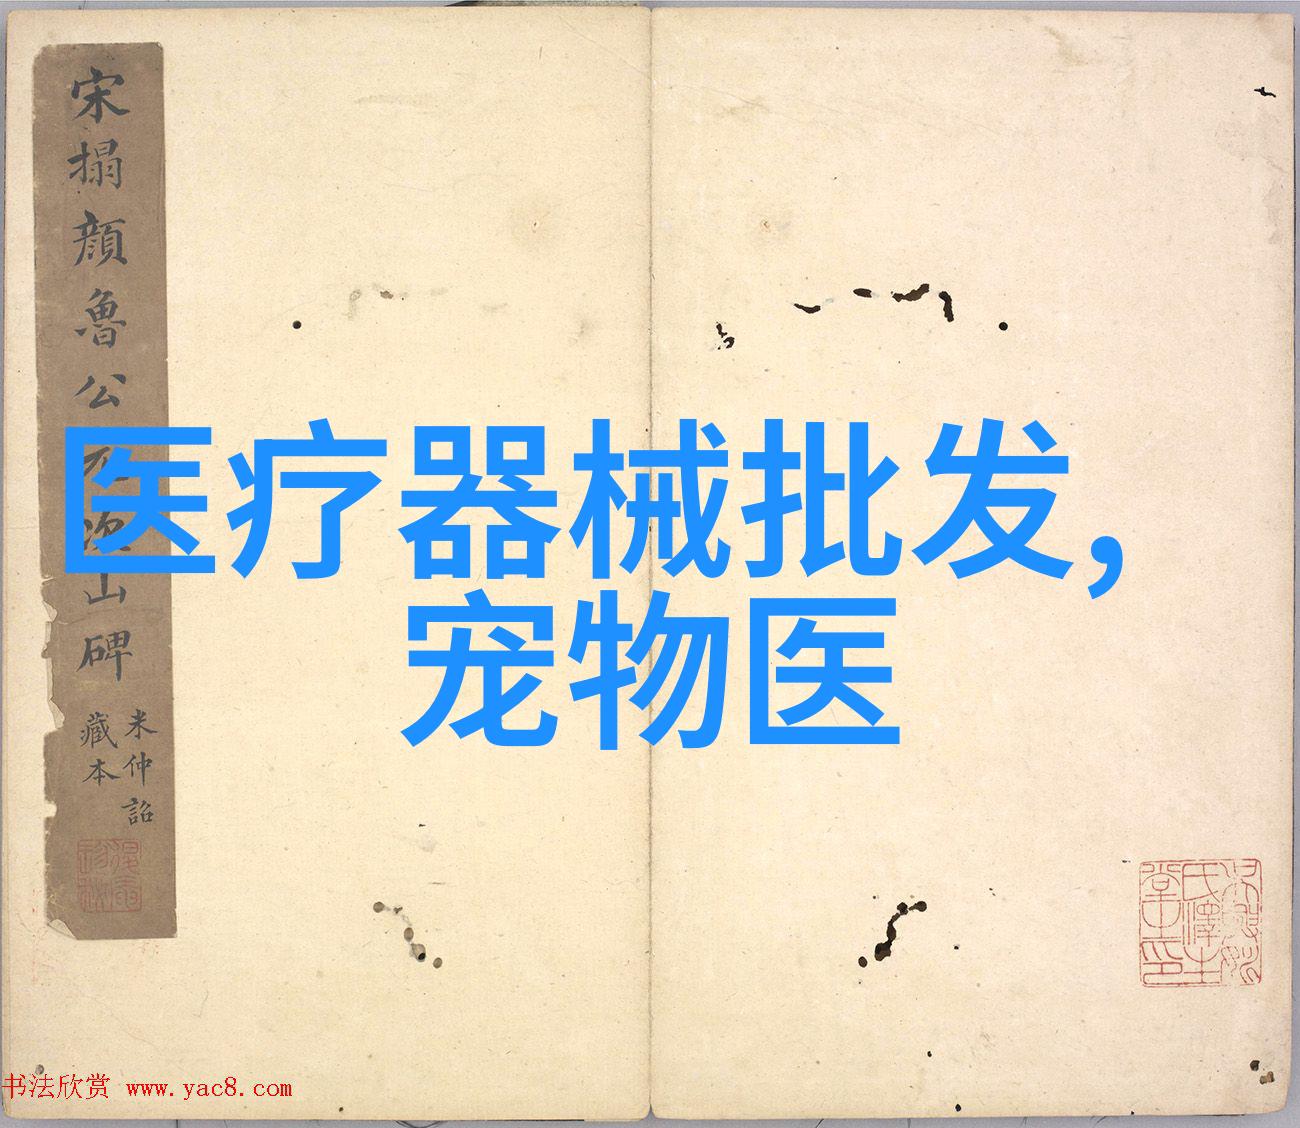 宋搨顔魯公
山碑
米仲詔
藏本
医疗器械批发，
宠物医
书法欣赏 www.yac8.com